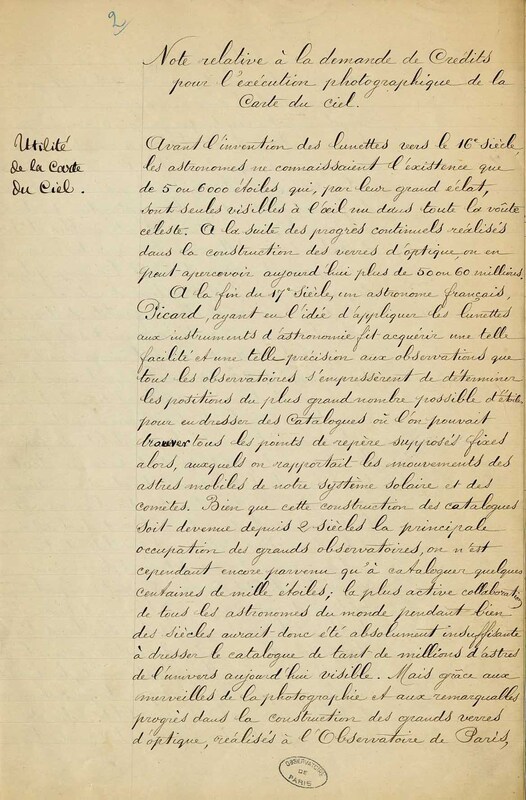 2
Note relative à la demande de Crédits
pour l'exécution photographique de la
Carte du ciel.
Utilité
de la Carte
du Ciel.
Avant l'invention des lunettes vers le 16e Siècle,
les astronomes ne connaissaient l'existence que
de 5 ou 6000 étoiles qui, par leur grand éclat,
sont seules visibles à l'œil nu dans toute la voûte
céleste. A la suite des progrès continuels réalisés
dans la construction des verres d'optique, on en
peut apercevoir aujourd'hui plus de 50 ou 60 millions.
A la fin du 17e Siècle, un astronome français,
Picard, ayant eu l'idée d'appliquer les lunettes
aux instruments d'astronomie fit acquérir une telle
facilité et une telle précision aux observations que
tous les observatoires s'empressèrent de déterminer
les positions du plus grand nombre possible d'étoiles
pour en dresser des Catalogues où l'on pouvait
trouver tous les points de repère supposés fixes
alors, auxquels on rapportait les mouvements des
astres mobiles de notre système solaire et des
comètes. Bien que cette construction des catalogues
soit devenue depuis 2 siècles la principale
occupation des grands observatoires, on n'est
cependant encore parvenu qu'à cataloguer quelques
centaines de mille étoiles; la plus active collaboration
de tous les astronomes du monde pendant bien
des Siècles aurait donc été absolument insuffisante
à dresser le catalogue de tant de millions d'astres
de l'univers aujourd'hui visible. Mais grâce aux
merveilles de la photographie et aux remarquables
progrès dans la construction des grands verres
d'optique, réalisés à l'Observatoire de Paris,
OBSERVATOIRE
DE
PARIS